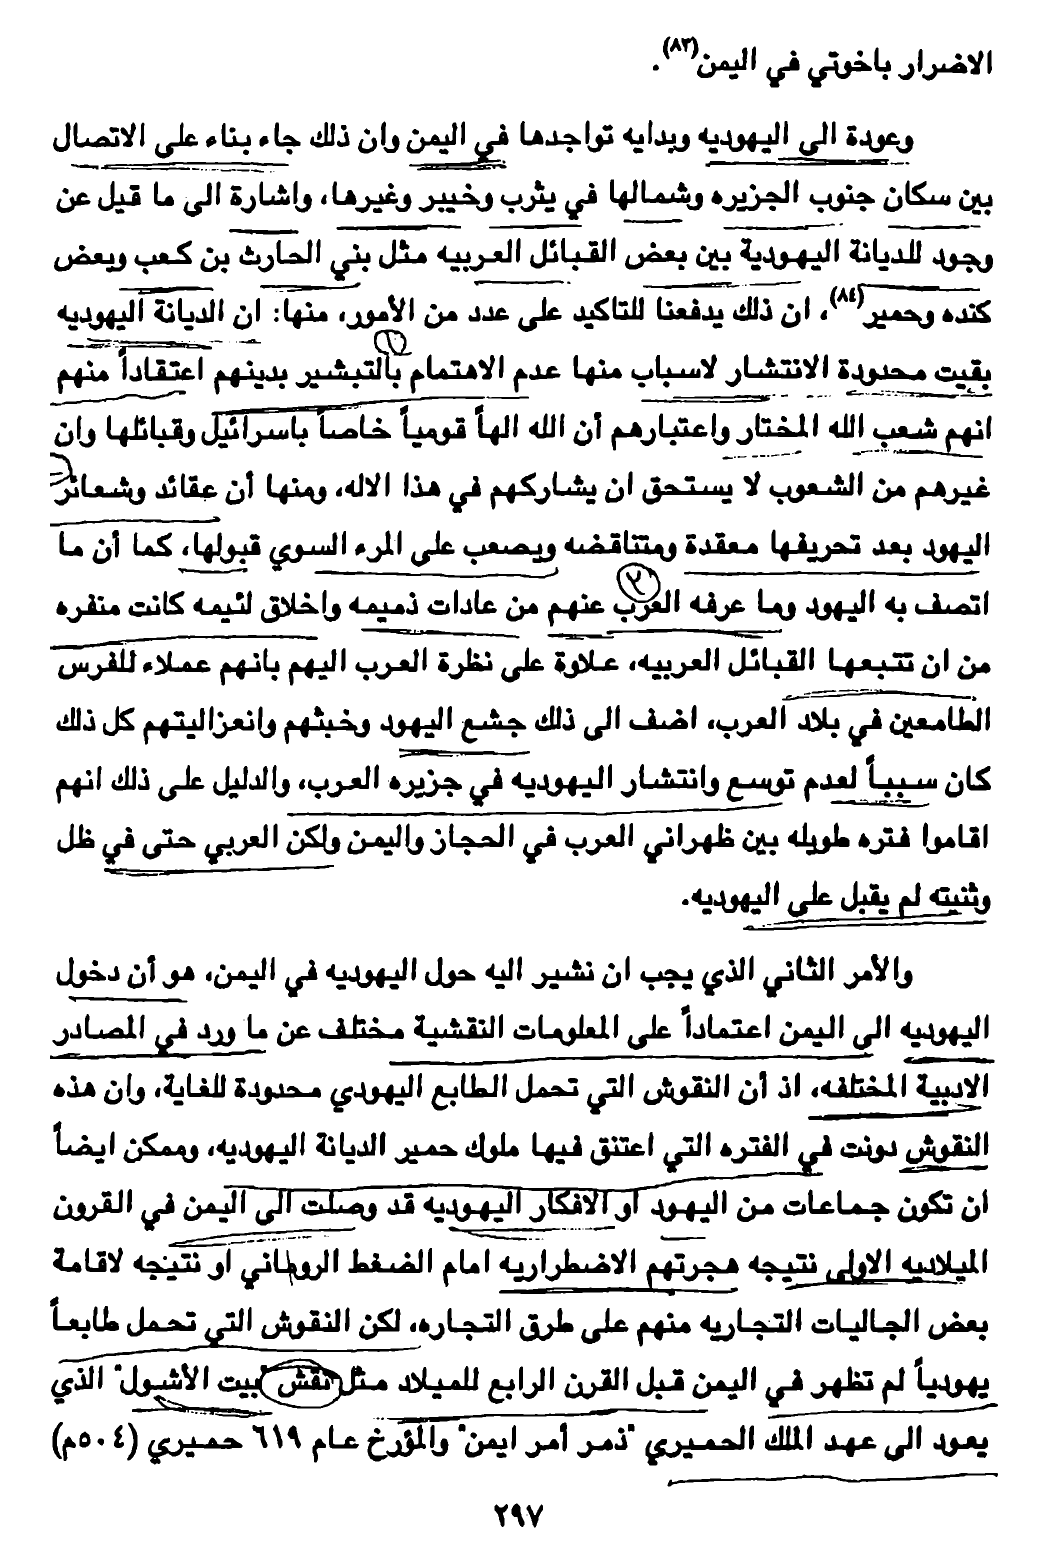 الاضرار باخوتي في اليمن(٨٣).
وعودة الى اليهوديه وبدايه تواجدها في اليمن وان ذلك جاء بناء على الاتصال
بين سكان جنوب الجزيره وشمالها في يثرب وخيبر وغيرها، واشارة الى ما قيل عن
وجود للديانة اليهودية بين بعض القبائل العربيه مثل بني الحارث بن كعب وبعض
كنده وحمير(٨٤)، ان ذلك يدفعنا للتاكيد على عدد من الأمور، منها: ان الديانة اليهوديه
بقيت محدودة الانتشار لاسباب منها عدم الاهتمام بالتبشير بدينهم اعتقاداً منهم
انهم شعب الله المختار واعتبارهم أن الله الهاً قومياً خاصاً باسرائيل وقبائلها وان
غيرهم من الشعوب لا يستحق ان يشاركهم في هذا الاله، ومنها أن عقائد وشعائر
اليهود بعد تحريفها معقدة ومتناقضه ويصعب على المرء السوي قبولها، كما أن ما
اتصف به اليهود وما عرفه العرب عنهم من عادات ذميمه واخلاق لئيمه كانت منفره
من ان تتبعها القبائل العربيه، علاوة على نظرة العرب اليهم بانهم عملاء للفرس
الطامعين في بلاد العرب، اضف الى ذلك جشع اليهود وخبثهم وانعزاليتهم كل ذلك
كان سبباً لعدم توسع وانتشار اليهوديه في جزيره العرب، والدليل على ذلك انهم
اقاموا فتره طويله بين ظهراني العرب في الحجاز واليمن ولكن العربي حتى في ظل
وثنيته لم يقبل على اليهوديه.
والأمر الثاني الذي يجب ان نشير اليه حول اليهوديه في اليمن، هو أن دخول
اليهوديه الى اليمن اعتماداً على المعلومات النقشية مختلف عن ما ورد في المصادر
الادبية المختلفه، اذ أن النقوش التي تحمل الطابع اليهودي محدودة للغاية، وان هذه
النقوش دونت في الفتره التي اعتنق فيها ملوك حمير الديانة اليهوديه، وممكن ايضاً
ان تكون جماعات من اليهود او الافكار اليهوديه قد وصلت الى اليمن في القرون
الميلاديه الاولى نتيجه هجرتهم الاضطراريه امام الضغط الروماني او نتيجه لاقامة
بعض الجاليات التجاريه منهم على طرق التجاره، لكن النقوش التي تحمل طابعاً
يهودياً لم تظهر في اليمن قبل القرن الرابع للميلاد مثل نقش "بيت الأشول" الذي
يعود الى عهد الملك الحميري "ذمر أمر ايمن" والمؤرخ عام ٦١٩ حميري (٥٠٤م)
٢٩٧